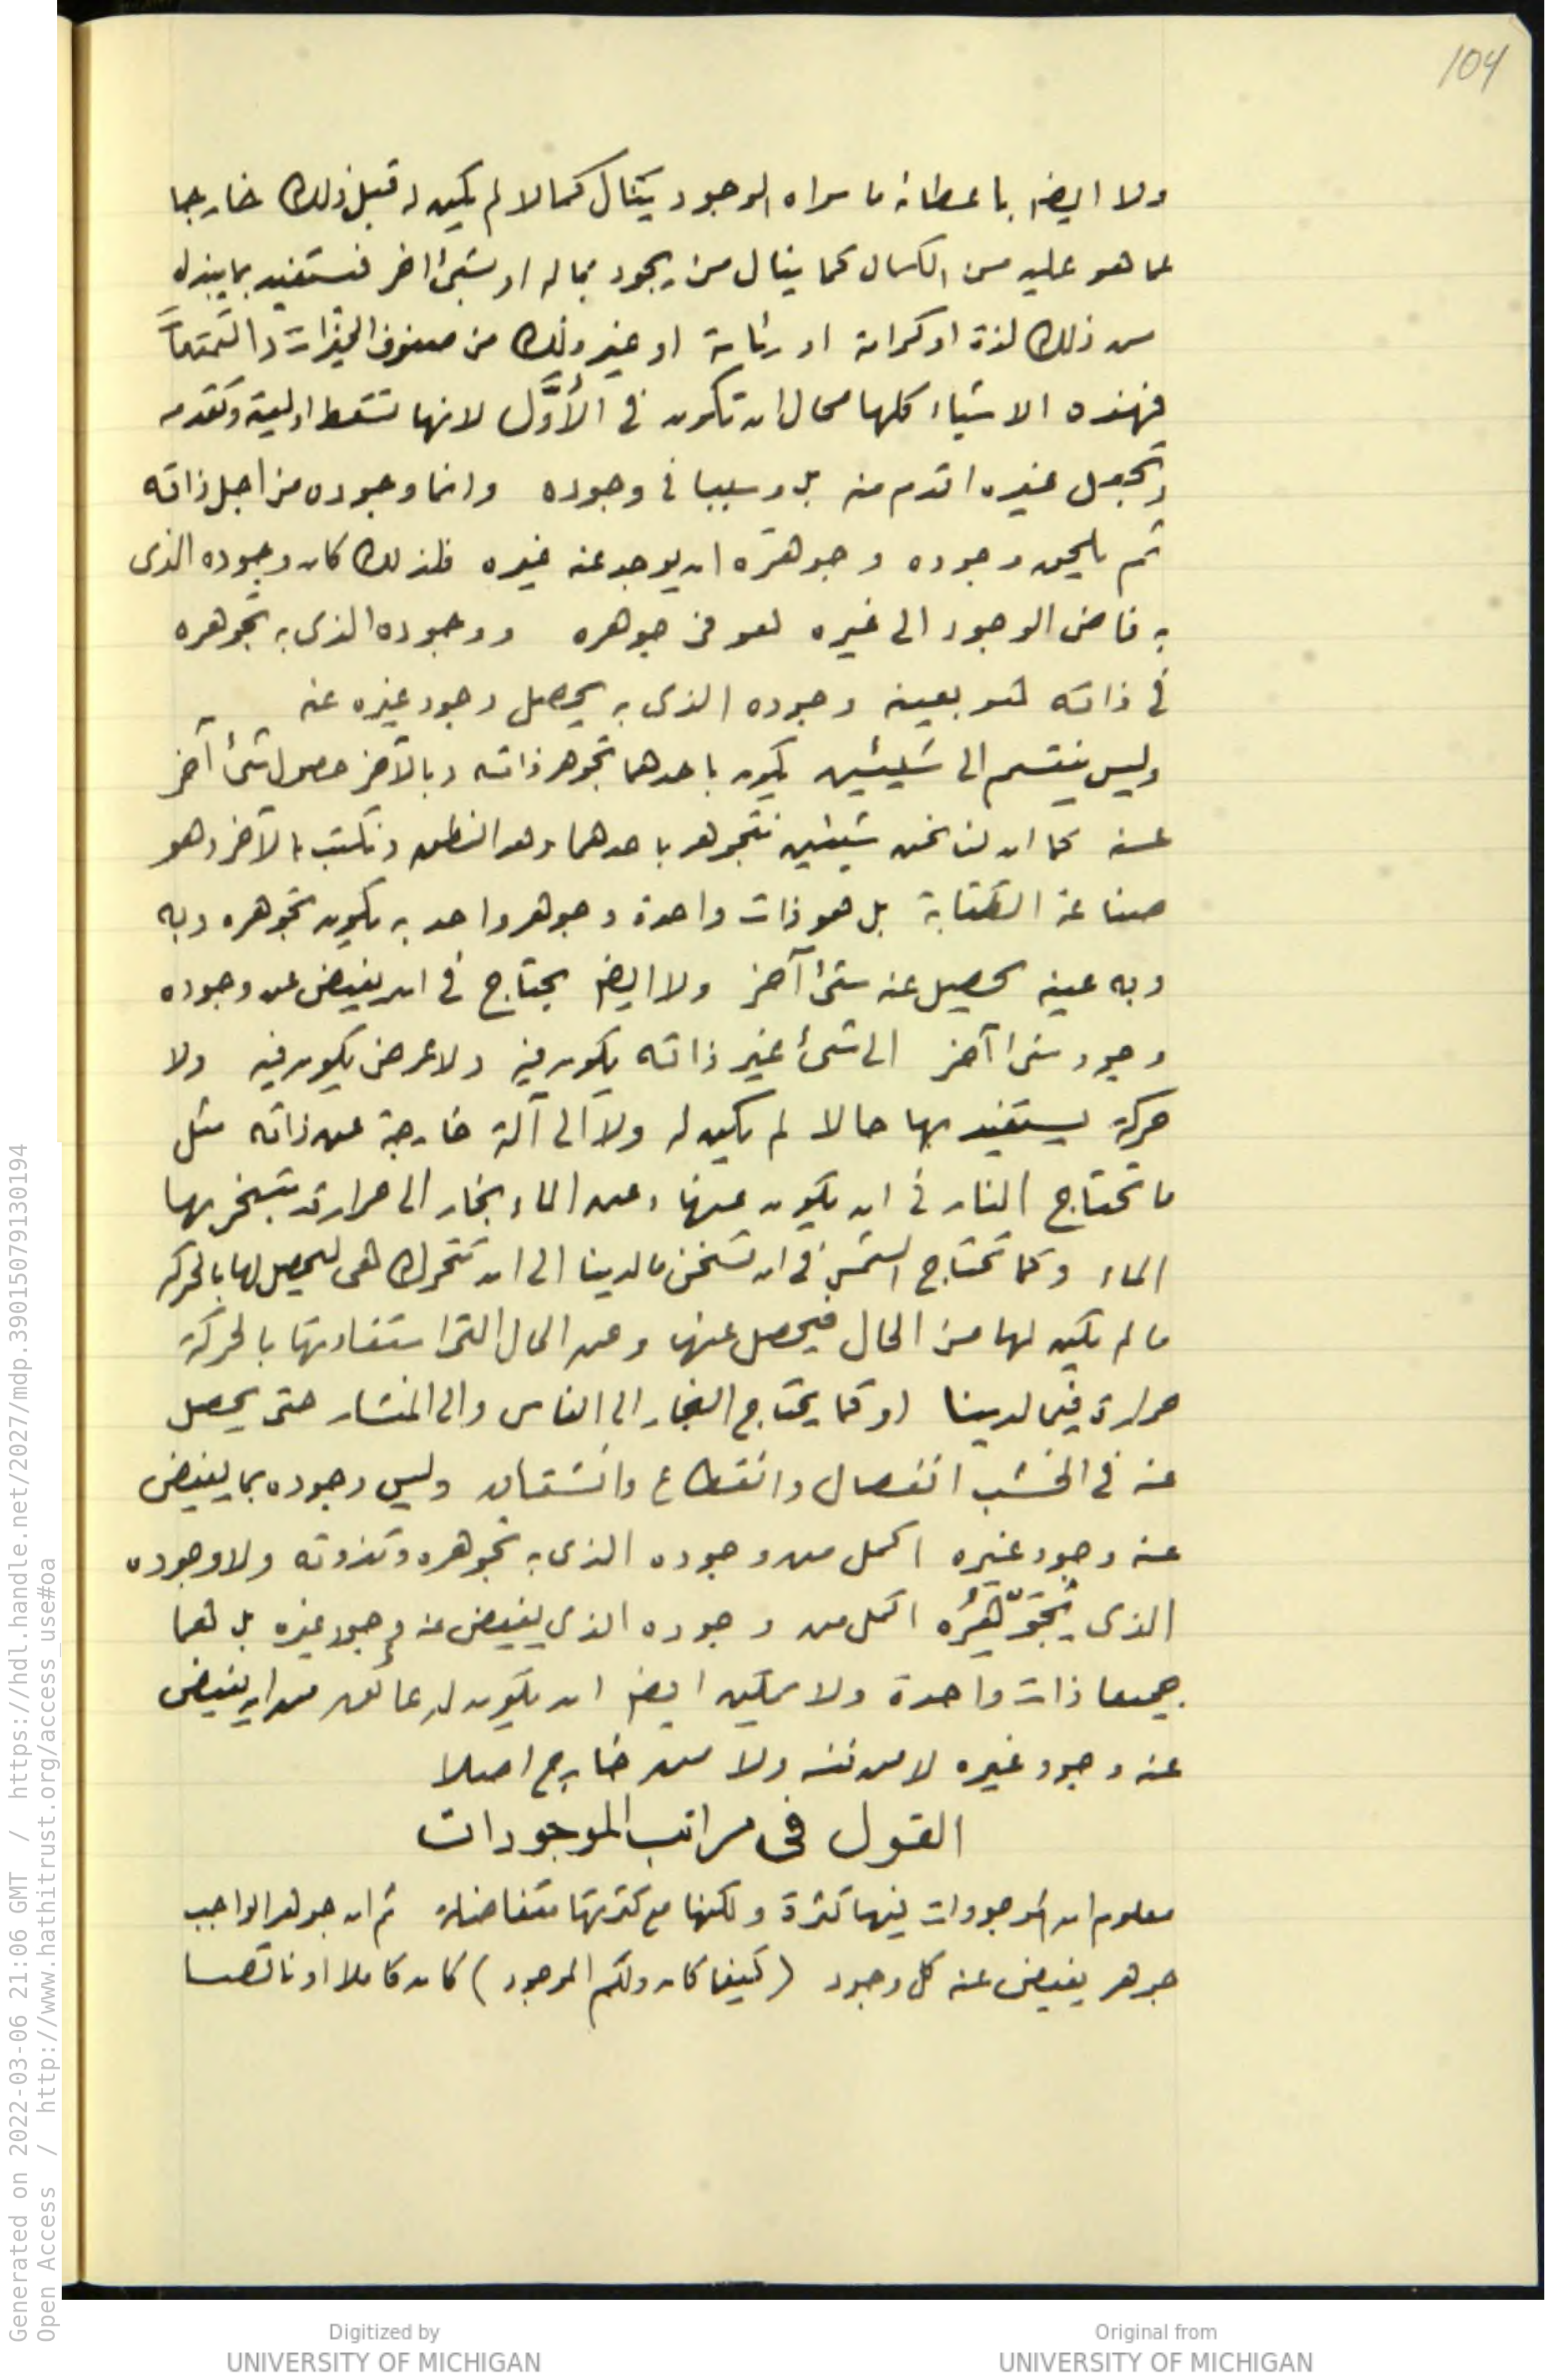 104
ولا ايضا باعطائه ما سواه الوجود ينال كمالا لم يكن له قبل ذلك خارجا
عما هو عليه من الكمال كما ينال من يجود بماله او بشئ اخر فيستفيد بما يبذله
من ذلك لذة او كرامة او رئاسة او غير ذلك من صنوف الخيرات والتمتعات
فهذه الاشياء كلها محال ان تكون في الأوّل لانها تسقط اوليته وتقدمه
وتجعل غيره اقدم منه بل وسببا في وجوده وانما وجوده من اجل ذاته
ثم يلحق وجوده وجوهره ان يوجد عنه غيره فلذلك كان وجوده الذى
به فاض الوجود الى غيره هو فى جوهره ووجوده الذى به تجوهره
في ذاته هو بعينه وجوده الذى به يحصل وجود غيره عنه
وليس ينقسم الى شيئين يكون باحدهما تجوهر ذاته وبالآخر حصول شئ آخر
عنه كما ان لنا نحن شيئين نتجوهر باحدهما وهو النطق ونكتب بالآخر وهو
صناعة الكتابة بل هو ذات واحدة وجوهر واحد به يكون تجوهره وبه
وبه عينه يحصل عنه شئ آخر ولا ايضا يحتاج في ان يفيض عن وجوده
وجود شئ آخر الى شئ غير ذاته يكون فيه ولا عرض يكون فيه ولا
حركة يستفيد بها حالا لم يكن له ولا الى آلة خارجة عن ذاته مثل
ما تحتاج النار في ان يكون عنها وعن الماء بخار الى حرارة يتبخر بها
الماء وكما تحتاج الشمس في ان تسخن ما لدينا الى ان تتحرك هى ليحصل لها بالحركة
ما لم يكن لها من الحال فيحصل عنها وعن الحال التى استفادتها بالحركة
حرارة فيما لدينا او كما يحتاج النجار الى الفاس والى المنشار حتى يحصل
عنه في الخشب انفصال وانقطاع وانشقاق وليس وجوده بما يفيض
عنه وجود غيره اكمل من وجوده الذى به تجوهره وتذوته ولا وجوده
الذى بتجوّهره اكمل من وجوده الذى يفيض عنه وجود غيره بل هما
جميعا ذات واحدة ولا يمكن ايضا ان يكون له عائق من ان يفيض
عنه وجود غيره لا من نفسه ولا من خارج اصلا
القول فى مراتب الموجودات
معلوم ان الموجودات فيها كثرة ولكنها مع كثرتها متفاضلة ثم ان جوهر الواجب
جوهر يفيض عنه كل وجود (كيفما كان ذلك الموجود) كان كاملا او ناقصا
Generated on 2022-03-06 21:06 GMT / https://hdl.handle.net/2027/mdp.39015079130194
Open Access / http://www.hathitrust.org/access_use#oa
Digitized by
UNIVERSITY OF MICHIGAN
Original from
UNIVERSITY OF MICHIGAN